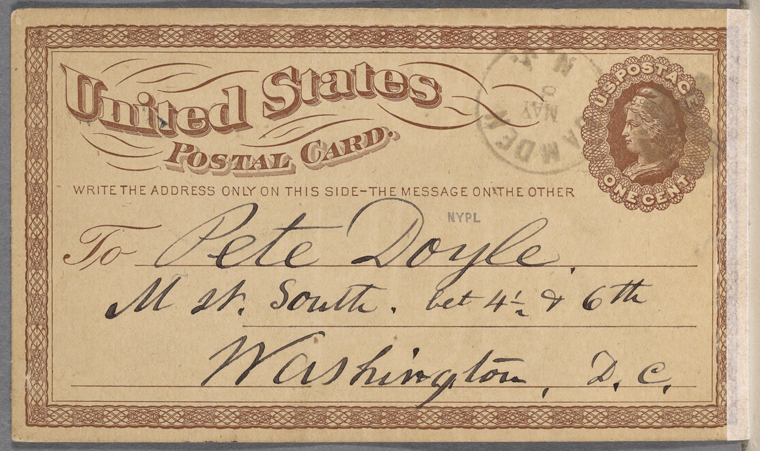 United States
POSTAL CARD.
U.S. POSTAGE
ONE CENT
CAMDEN
MAY
N.J.
WRITE THE ADDRESS ONLY ON THIS SIDE-THE MESSAGE ON THE OTHER
NYPL
To Pete Doyle.
M st. South. bet 4½ & 6th
Washington, D.C.